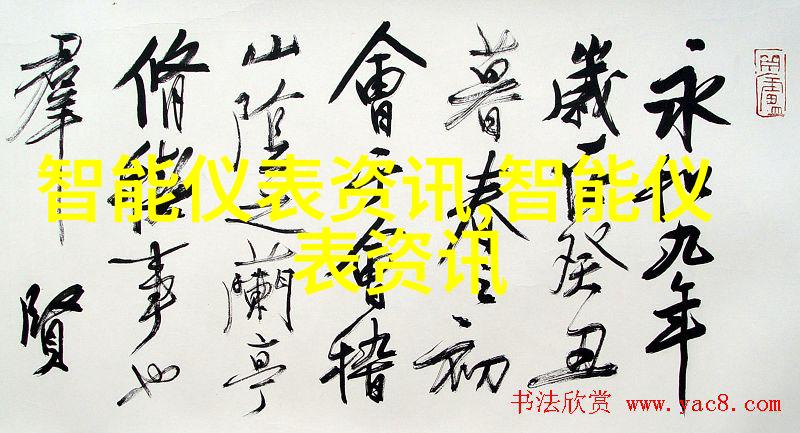 永和九年
歲在癸丑
暮春之初
會于會稽
山陰之蘭亭
脩禊事也
羣賢
智能仪表资讯,智能仪
表资讯
书法欣赏 www.yac8.com